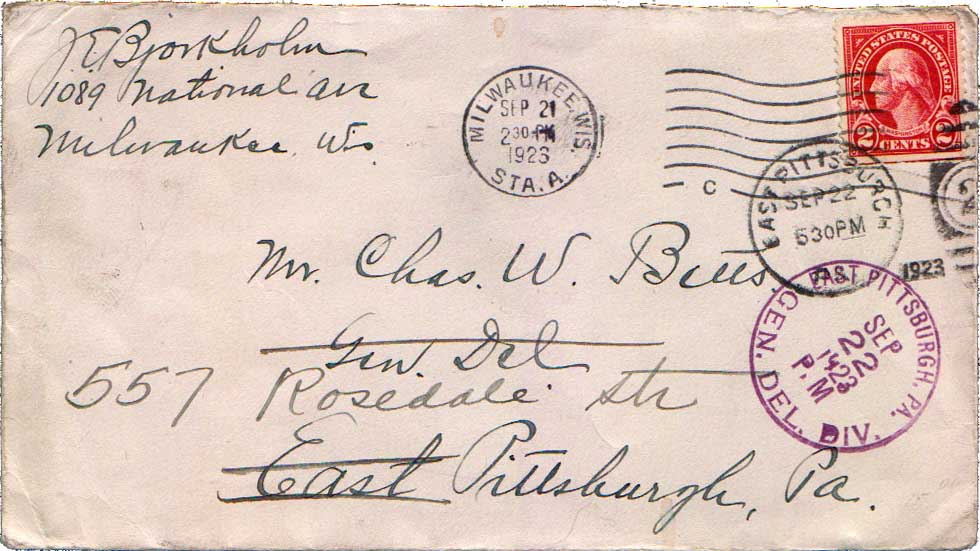 J E Bjorkholm
1089 National Ave
Milwaukee Wis.
MILWAUKEE, WIS.
SEP 21
2 30 PM
1923
STA. A.
C
UNITED STATES POSTAGE
WASHINGTON
2 CENTS 2
EAST PITTSBURGH
SEP 22
5 30 PM
1923
Mr. Chas. W. Betts,
Gen. Del
557 Rosedale Str
East Pittsburgh, Pa.
EAST PITTSBURGH, PA.
SEP
22
1923
P. M
GEN. DEL. DIV.